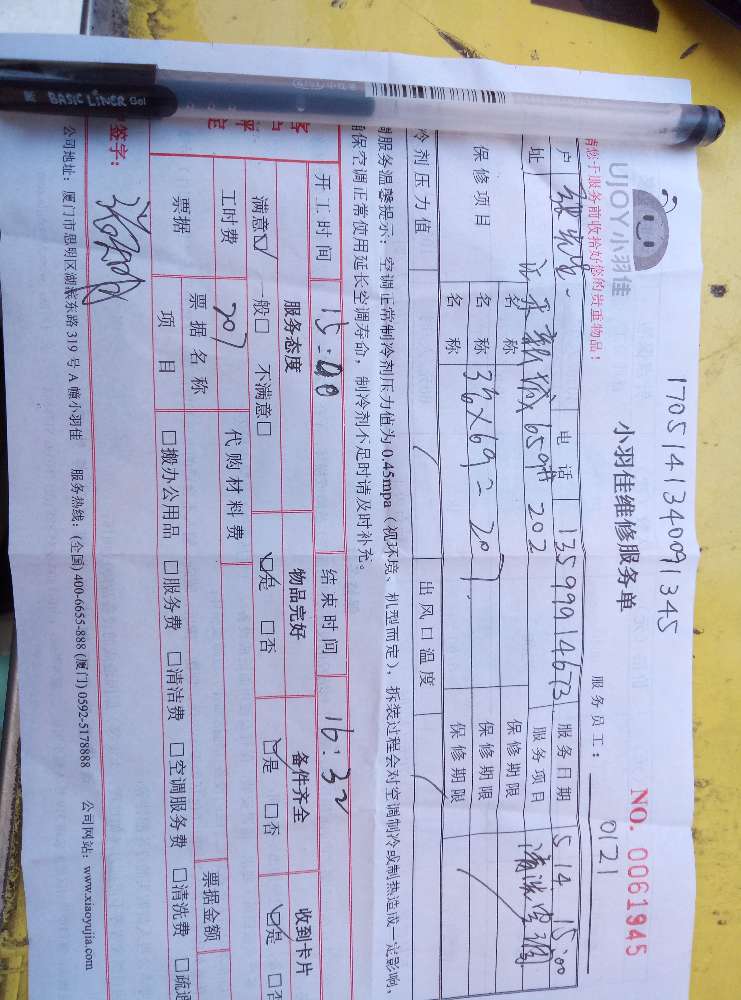 170514134009１345
小羽佳维修服务单
UJOY小羽佳
NO. 0061945
服务员工： 0121
请您于服务前收拾好您的贵重物品！
户 张先生 电话 13599914673 服务日期 5.14 15:00
址 新城 659# 202 服务项目 清洗空调
保修项目 名称 保修期限
名称 3台×69=207 保修期限
名称 保修期限
冷剂压力值 出风口温度
调服务温馨提示：空调正常制冷剂压力值为0.45mpa（视环境、机型而定），拆装过程会对空调制冷或制热造成一定影响，
确保空调正常使用延长空调寿命，制冷剂不足时请及时补充。
开工时间 15:00 结束时间 16:32
服务态度 物品完好 备件齐全 收到卡片
满意☑ 一般□ 不满意□ ☑是 □否 ☑是 □否 ☑是 □否
工时费 207 代购材料费
票据 票据名称 票据金额
项目 □搬办公用品 □服务费 □清洁费 □空调服务费 □清洗费 □疏通
签字：
公司地址：厦门市思明区湖滨东路319号A幢小羽佳 服务热线：(全国) 400-6655-888 (厦门) 0592-5178888 公司网站：www.xiaoyujia.com
BASIC LINER Gel